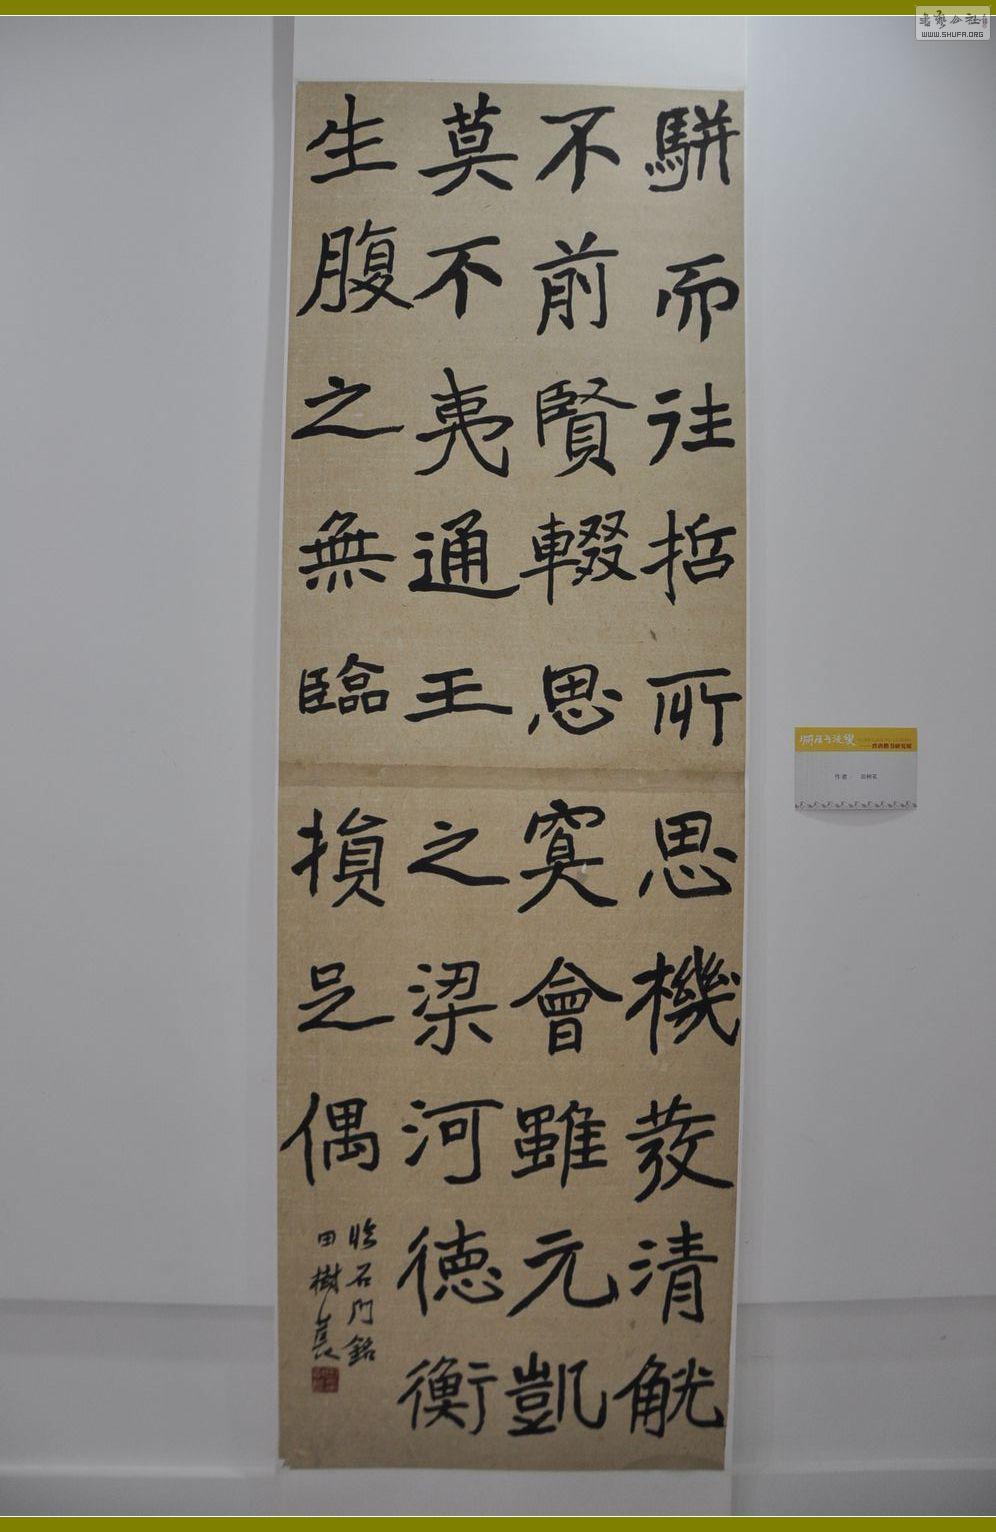 騈而往哲所思機發清觥
不前賢輟思寞會雖元凱
莫不夷通王之梁河德衡
生腹之無臨損足偶
臨石門銘
田樹萇
WWW.SHUFA.ORG
作者： 田树苌